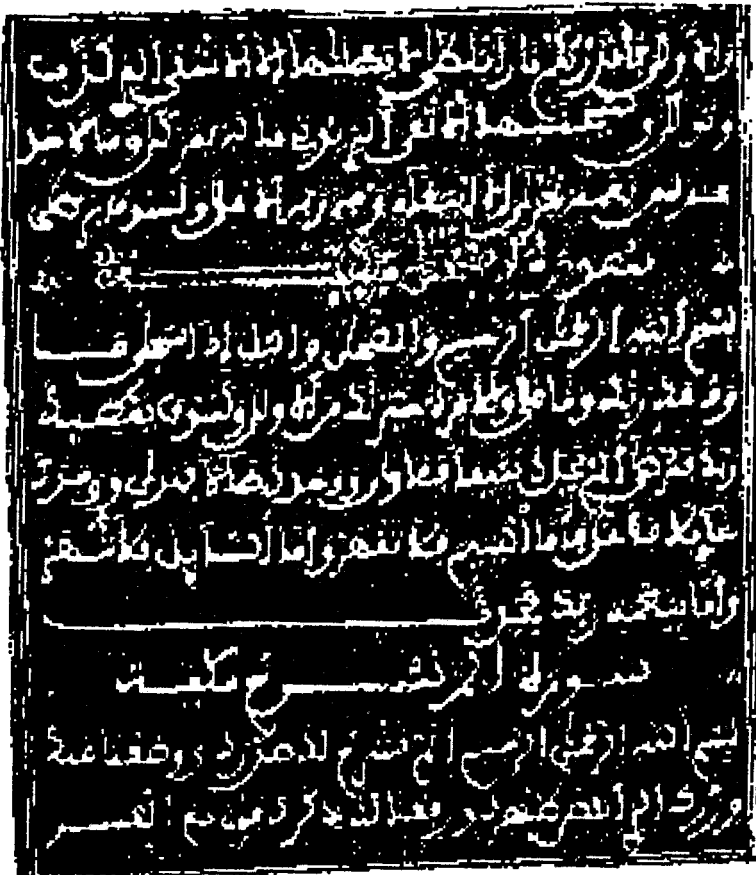 والاولى فأنذرتكم نارا تلظى لا يصلىها إلا الأشقى الذى كذب
وتولى وسيجنبها الأتقى الذى يؤتى ماله يتزكى وما لأحد
عنده من نعمة تجزى إلا ابتغاء وجه ربه الأعلى ولسوف يرضى
سورة والضحى
بسم الله الرحمن الرحيم والضحى واليل إذا سجى ما
ودعك ربك وما قلى وللأخرة خير لك من الأولى ولسوف يعطيك
ربك فترضى ألم يجدك يتيما فـاوى ووجدك ضالا فهدى ووجدك
عايلا فأغنى فأما اليتيم فلا تقهر وأما السايل فلا تنهر
وأما بنعمة ربك فحدث
سورة ألم نشرح مكية
بسم الله الرحمن الرحيم ألم نشرح لك صدرك ووضعنا عنك
وزرك الذى أنقض ظهرك ورفعنا لك ذكرك فإن مع العسر